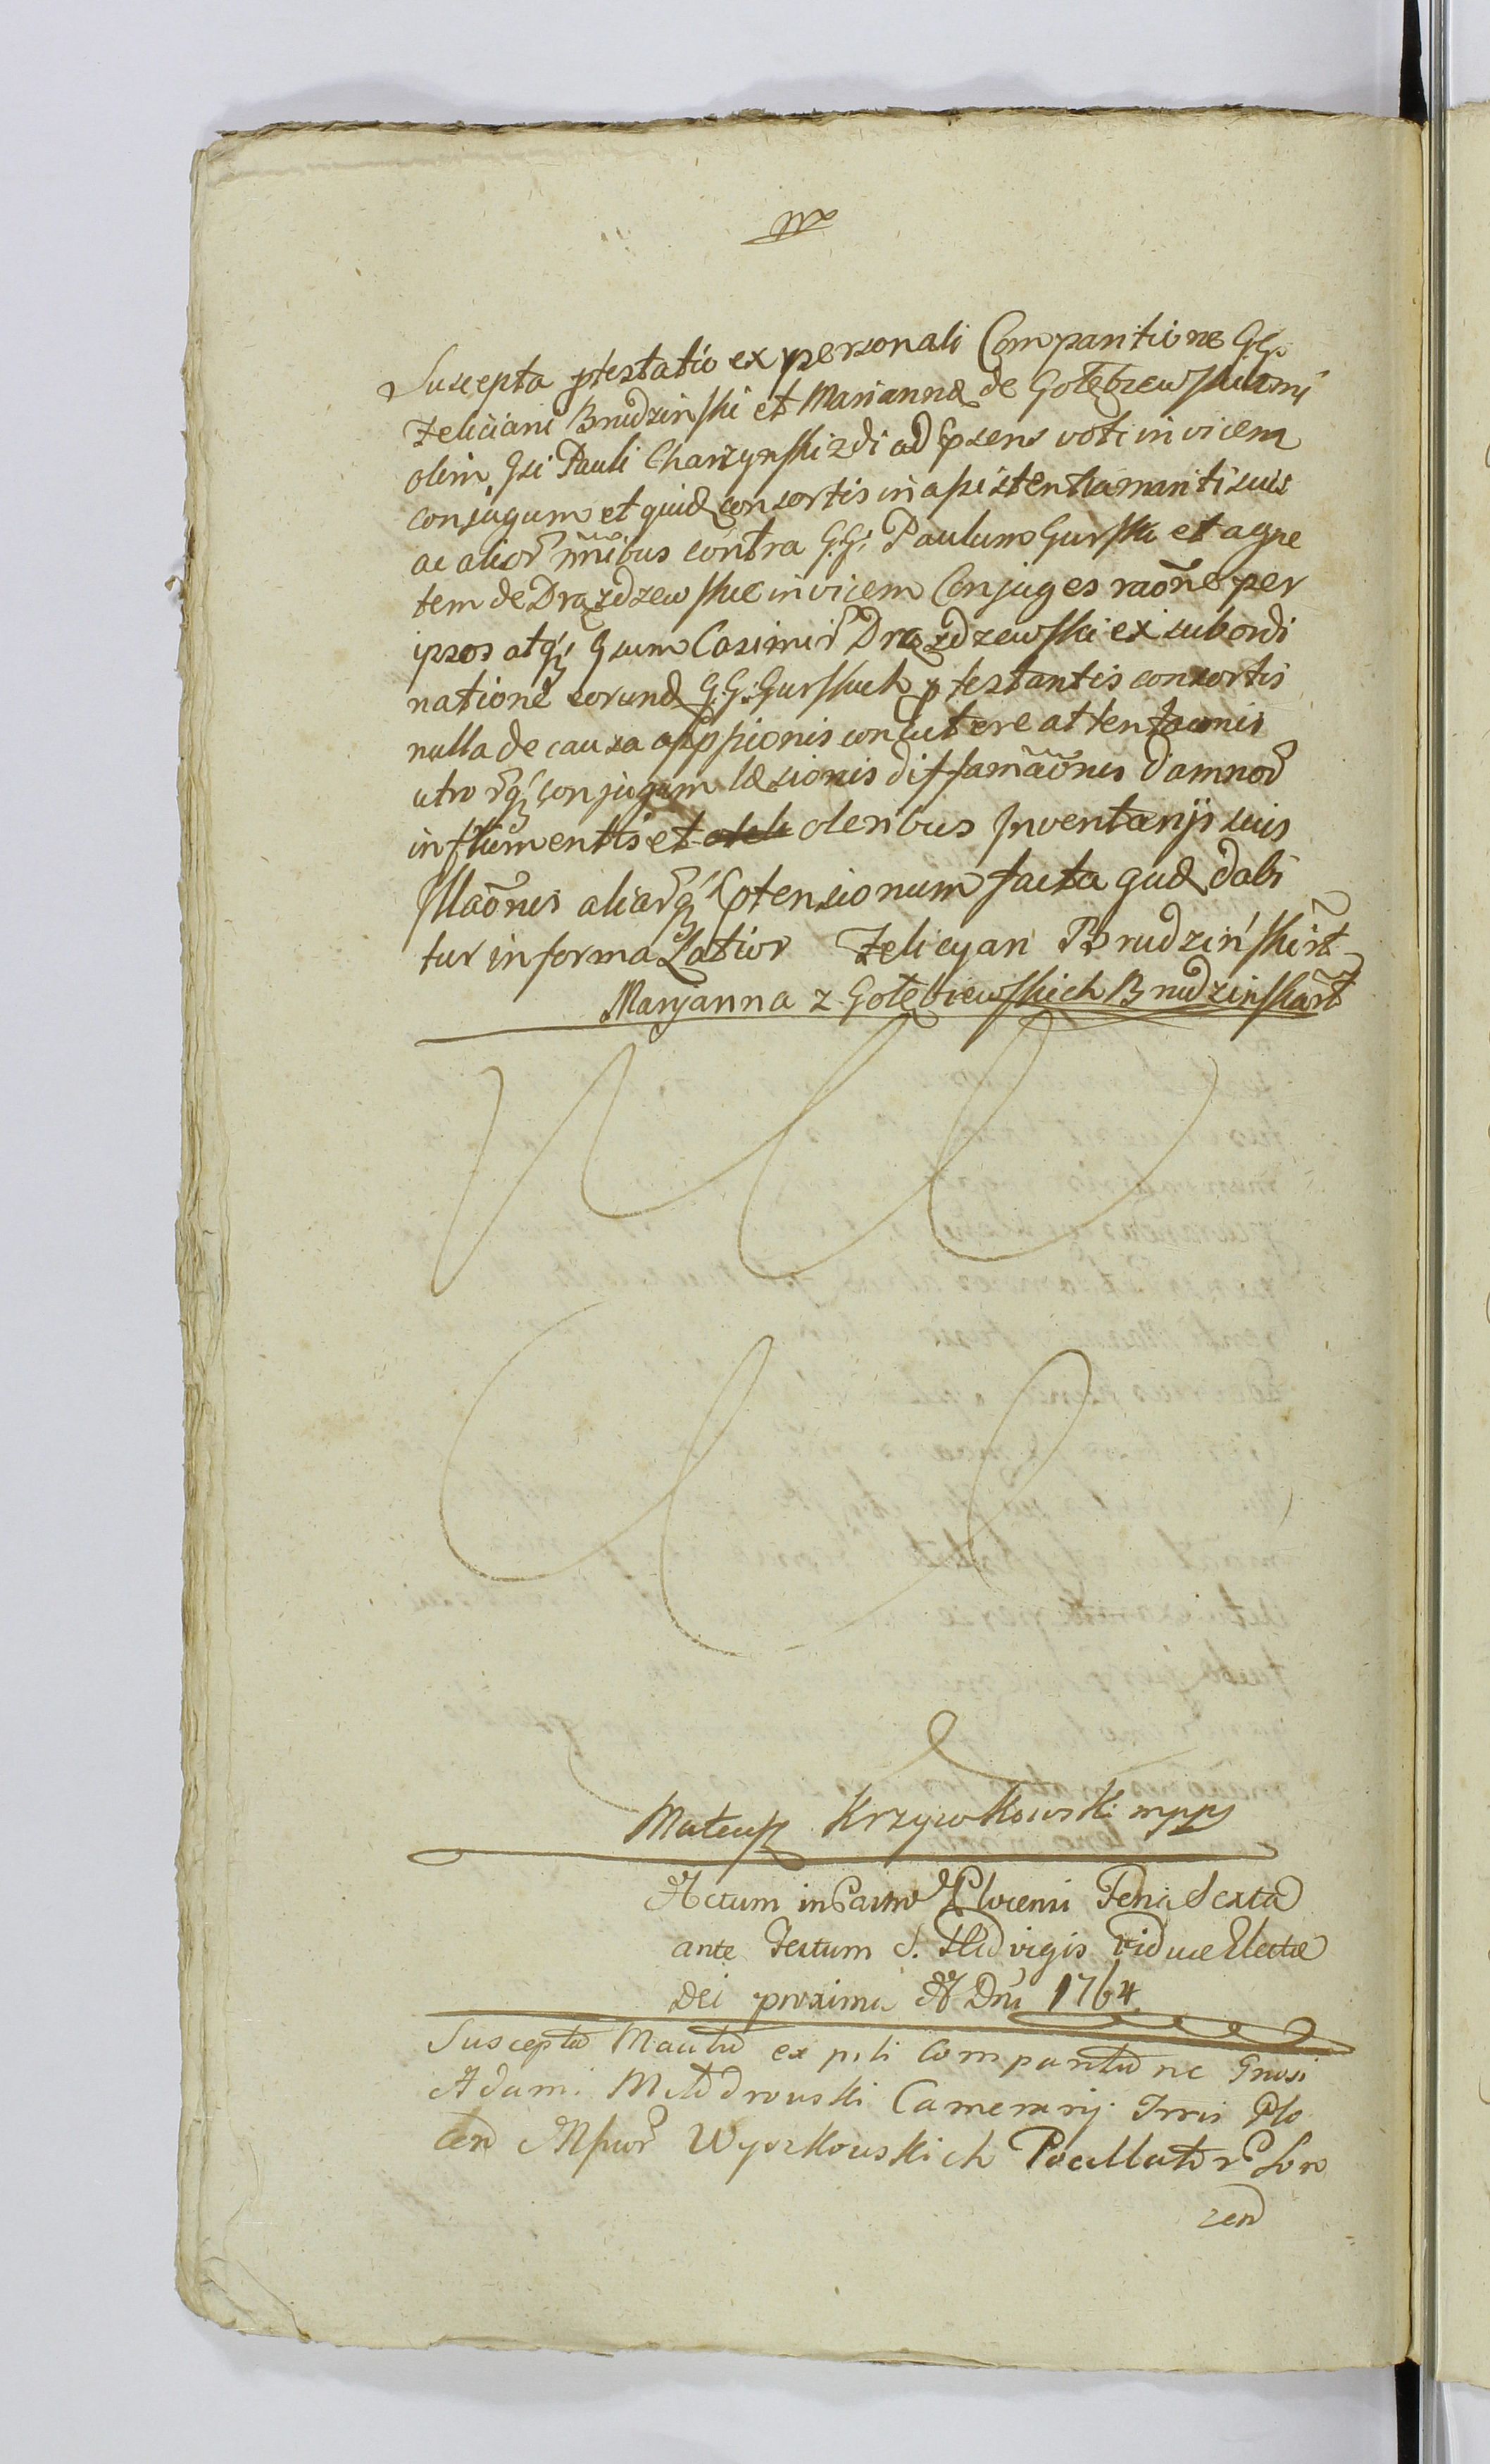 Suscepta ptestatio ex personali Comparitione GG.
Feliciani Brudzinski et Marianna de Gołębiewskie 1mi
olim Gsi Pauli Charzynski 2di ad psens voti invicem
conjugum et quid consortis in assistentia mariti suis
ac alior nnibus contra G.G. Paulum Gurski et agne
tem de Drązdzewskie invicem Conjuges raõne per
ipsos atq Gsum Casimir Drązdzewski ex subordi
natione eorund G.G. Gurskich ptestantis consortis
nulla de causa oppssionis concutere attentionis
utro rq conjugum læsionis diffamãonis damnor
in frumentis et oleribus Inventarijs suis
Illaõnis aliarq ptensionum facta quæ dabi
tur in forma Latior Felicyan Brudzinski rt
Maryanna z Gołębiewskich Brudzinska rt
Mateusz Krzywkowski mpp
Actum in Castro Plocensi Feria Sexta
ante Festum S. Hedvigis Viduæ Electæ
Dei proxima A Dni 1764
Suscepta Mańtio ex psli Comparitione Gnosi
Adami Modrowski Camerarij Trris Plo
cen Mfcor Wyczkowskich Pocillator
zen